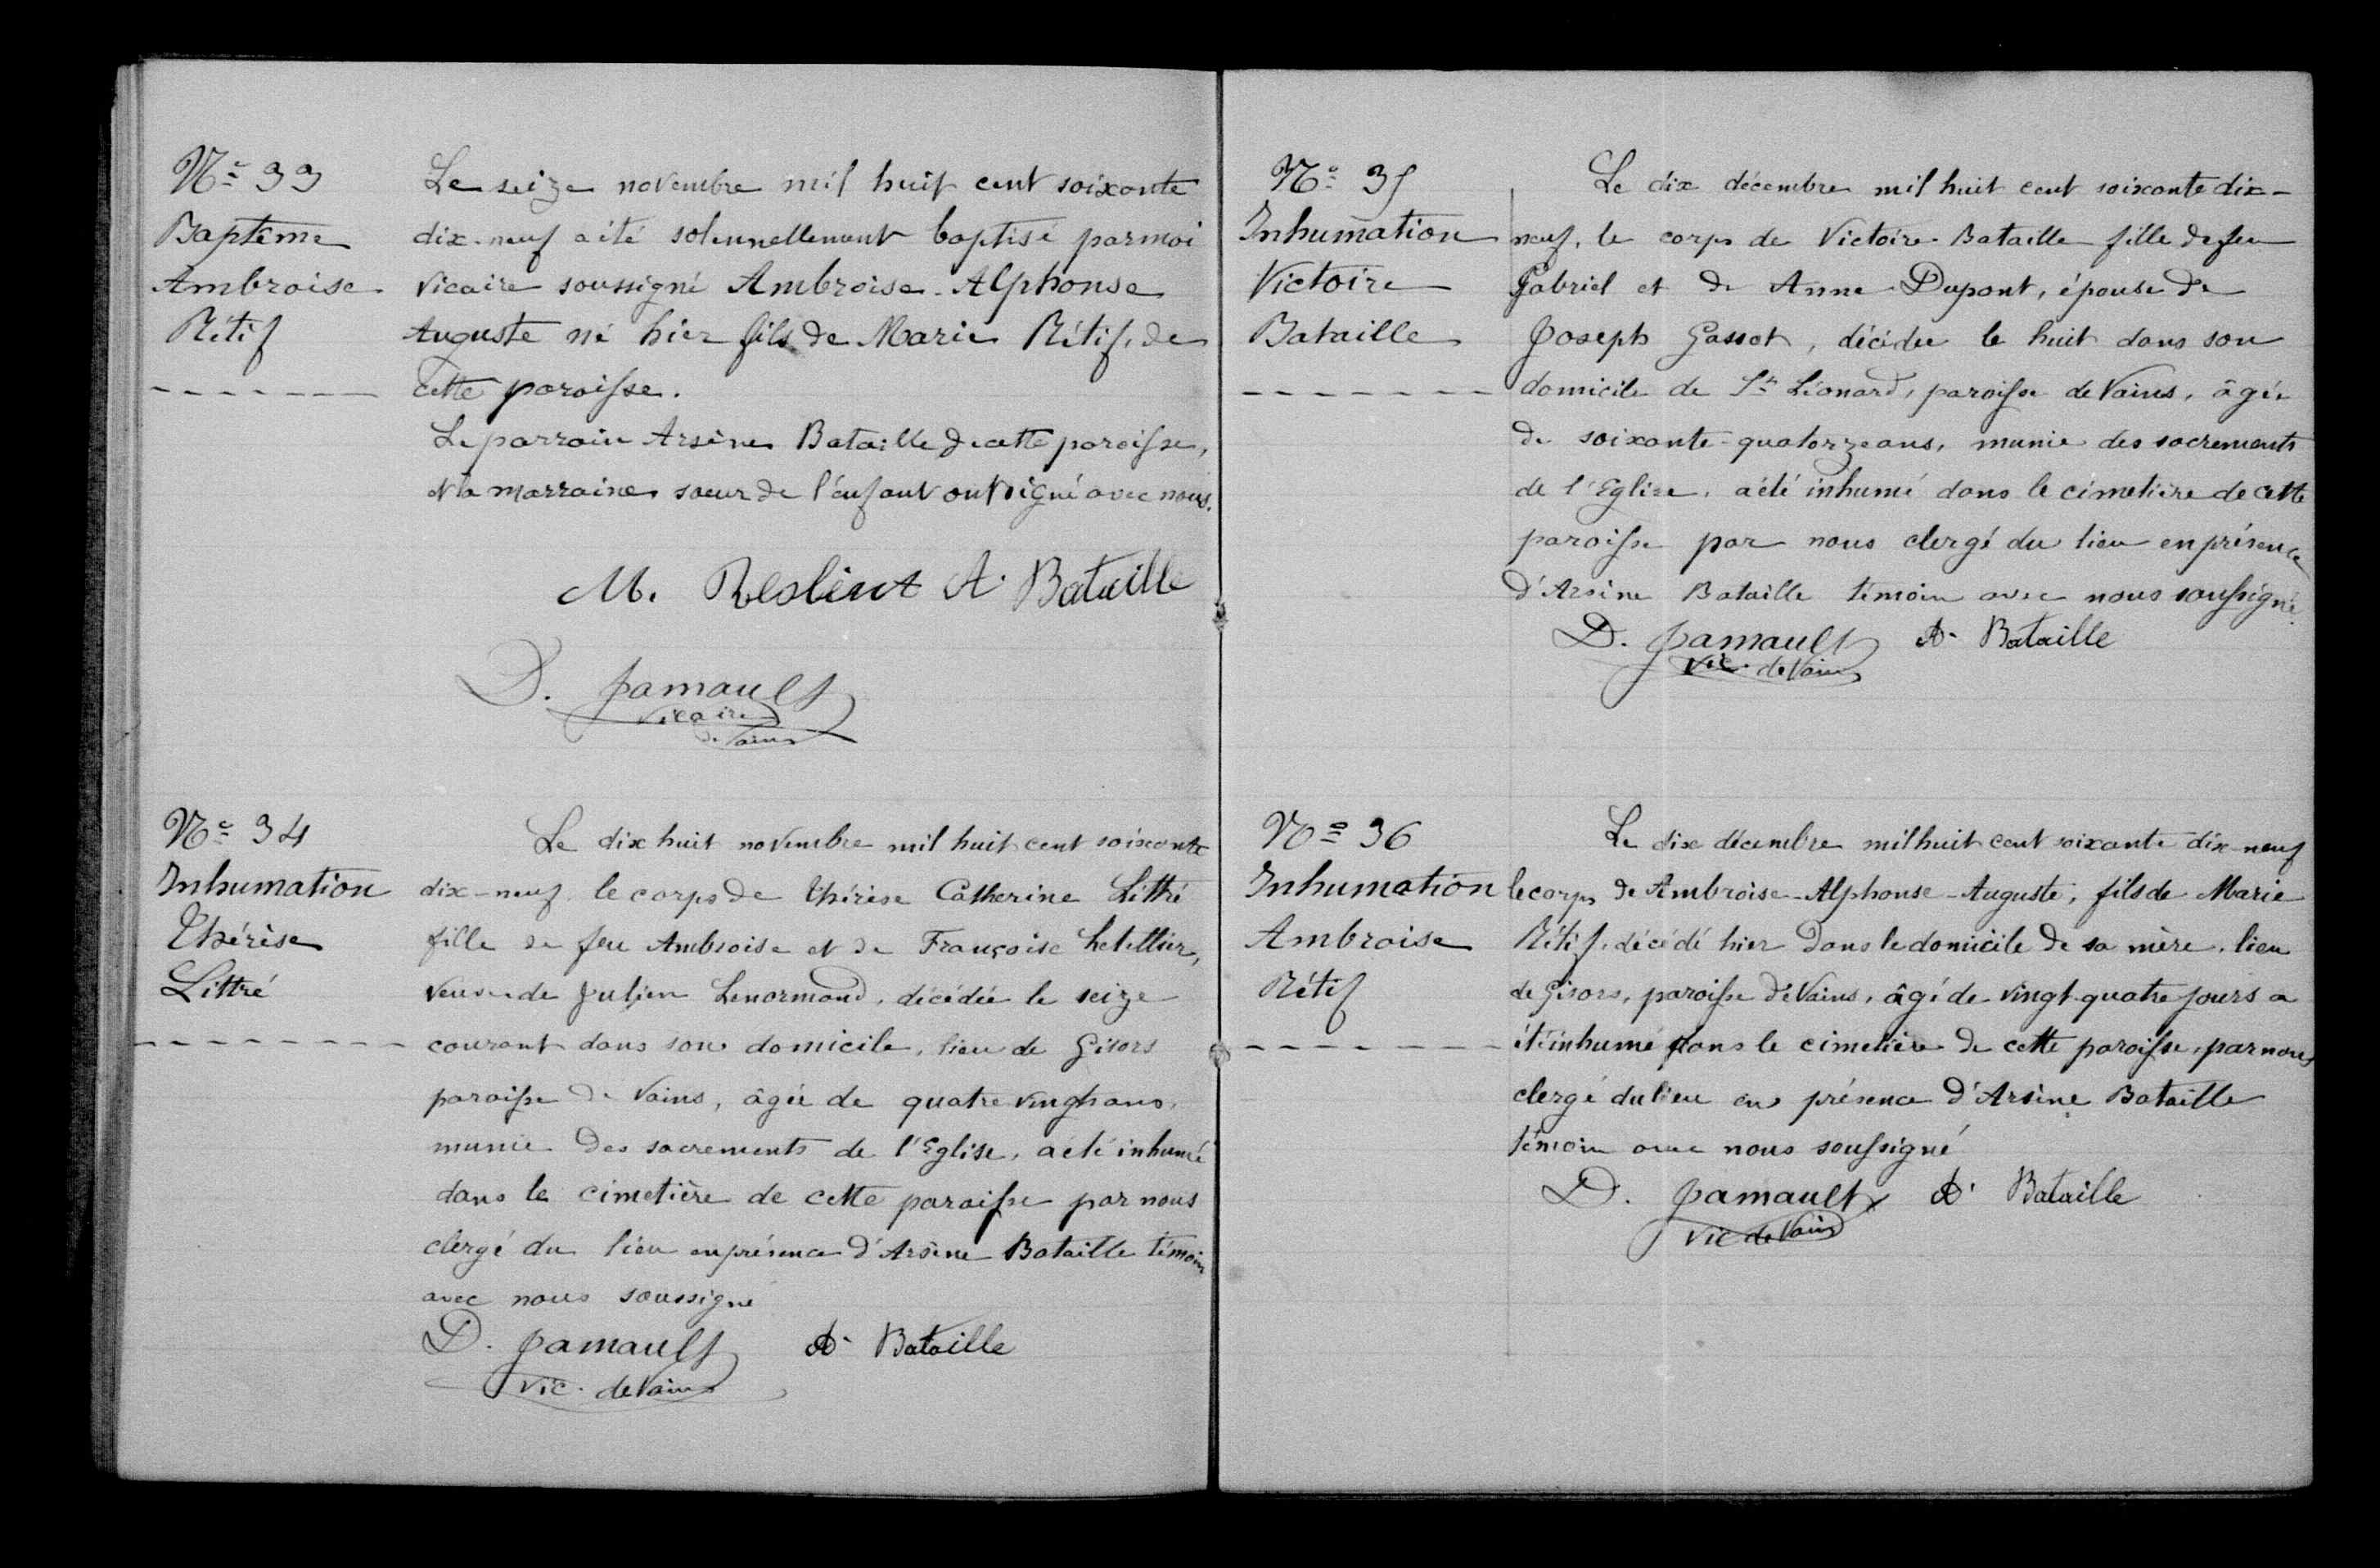 Nº 33
Baptême
Ambroise
Rétif
Le seize novembre mil huit cent soixante
dix-neuf a été solennellement baptisé par moi
vicaire soussigné Ambroise-Alphonse
Auguste né hier fils de Marie Rétif, de
cette paroisse.
Le parrain Arsène Bataille de cette paroisse,
et la marraine soeur de l'enfant ont signé avec nous.
M. A. Bataille
D. Jamault
vicaire
de Vains
Nº 34
Inhumation
Thérèse
Littré
Le dix huit novembre mil huit cent soixante
dix-neuf le corps de Thérèse Catherine Littré
fille de feu Ambroise et de Françoise Letellier,
veuve de Julien Lenormand, décédée le seize
courant dans son domicile, lieu de Gisors
paroisse de Vains, âgée de quatre vingts ans,
munie des sacrements de l'Eglise, a été inhumé
dans le cimetière de cette paroisse par nous
clergé du lieu en présence d'Arsène Bataille témoin
avec nous soussigné
D. Jamault A. Bataille
vic. de Vains
Nº 35
Inhumation
Victoire
Bataille
Le dix décembre mil huit cent soixante dix-
neuf, le corps de Victoire Bataille fille de feu
Gabriel et de Anne Dupont, épouse de
Joseph Gassot, décédée le huit dans son
domicile de St Léonard, paroisse de Vains, âgée
de soixante-quatorze ans, munie des sacrements
de l'Eglise, a été inhumé dans le cimetière de cette
paroisse par nous clergé du lieu en présence
d'Arsène Bataille témoin avec nous soussigné.
D. Jamault A. Bataille
vic. de Vains
Nº 36
Inhumation
Ambroise
Rétif
Le dix décembre mil huit cent soixante dix-neuf
le corps de Ambroise-Alphonse-Auguste, fils de Marie
Rétif, décédé hier dans le domicile de sa mère, lieu
de Gisors, paroisse de Vains, âgé de vingt-quatre jours a
été inhumé dans le cimetière de cette paroisse, par nous
clergé du lieu en présence d'Arsène Bataille
témoin avec nous soussigné
D. Jamault A. Bataille
vic de Vains